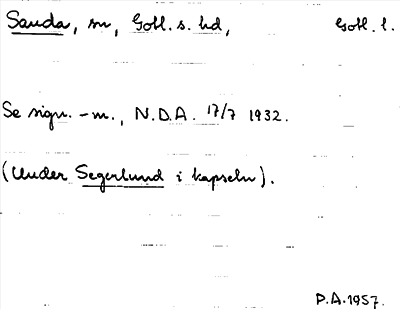 Sauda, m, Gotl. s. hd, Gotl. l.
Se sign. -m., N.D.A. 17/7 1932.
(Under Segerlund i kapseln).
P.A. 1957.